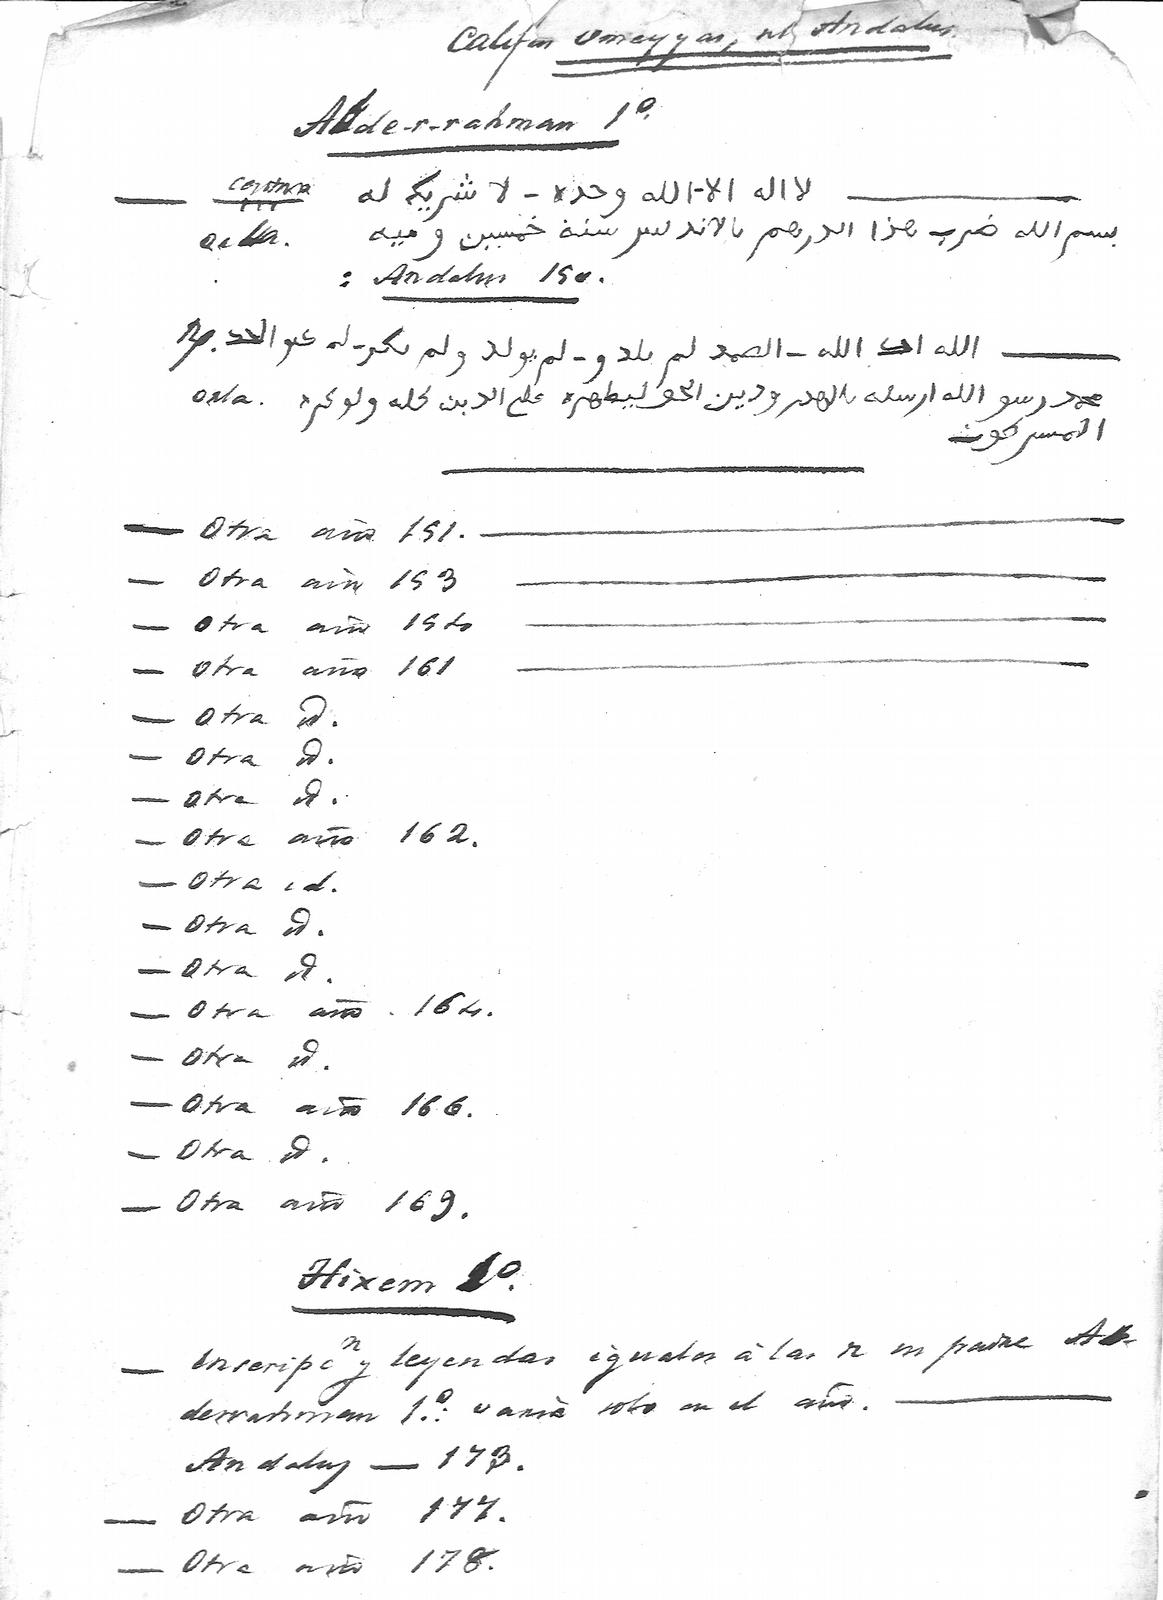 Califas Omeyyas, al Andalus.
Abde-r-rahman 1º.
— لا اله الا الله وحده - لا شريك له —
orla. بسم الله ضرب هذا الدرهم بالاندلس سنة خمسين و ميه
: Andalus 150.
الله احد الله - الصمد لم يلد و - لم يولد ولم يكن - له كفوا احد —
orla. محمد رسو الله ارسله بالهدى ودين الحق ليظهره على الدين كله ولو كره
المسركون
— Otra año 151. —
— Otra año 153 —
— Otra año 154 —
— Otra año 161 —
— Otra id.
— Otra id.
— Otra id.
— Otra año 162.
— Otra id.
— Otra id.
— Otra id.
— Otra año 164.
— Otra id.
— Otra año 166.
— Otra id.
— Otra año 169.
Hixem 1º.
— Inscripcn y leyendas iguales á las de su padre Ab-
derrahman 1º.: varía solo en el año. —
Andalus — 173.
— Otra año 177.
— Otra año 178.